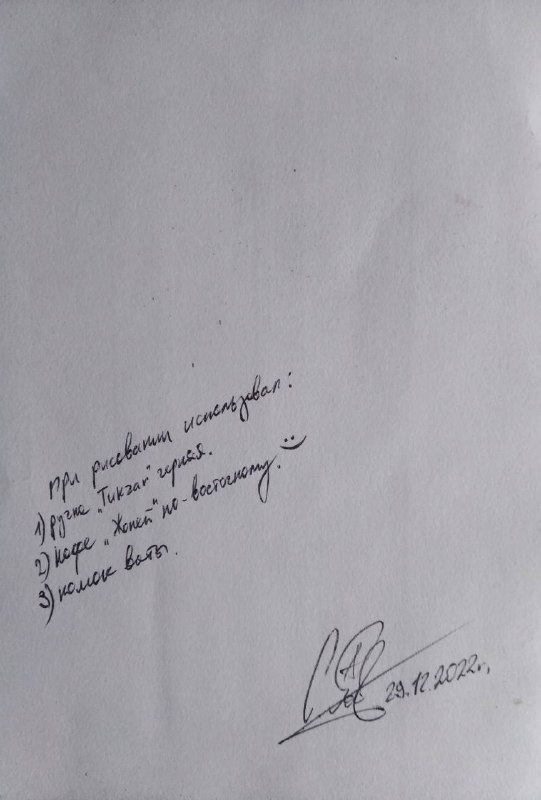 при рисовании использовал:
1) ручка „Тикзап" черная.
2) Кофе „Жокей" по-восточному.
3) комок ваты.
29.12.2022г,